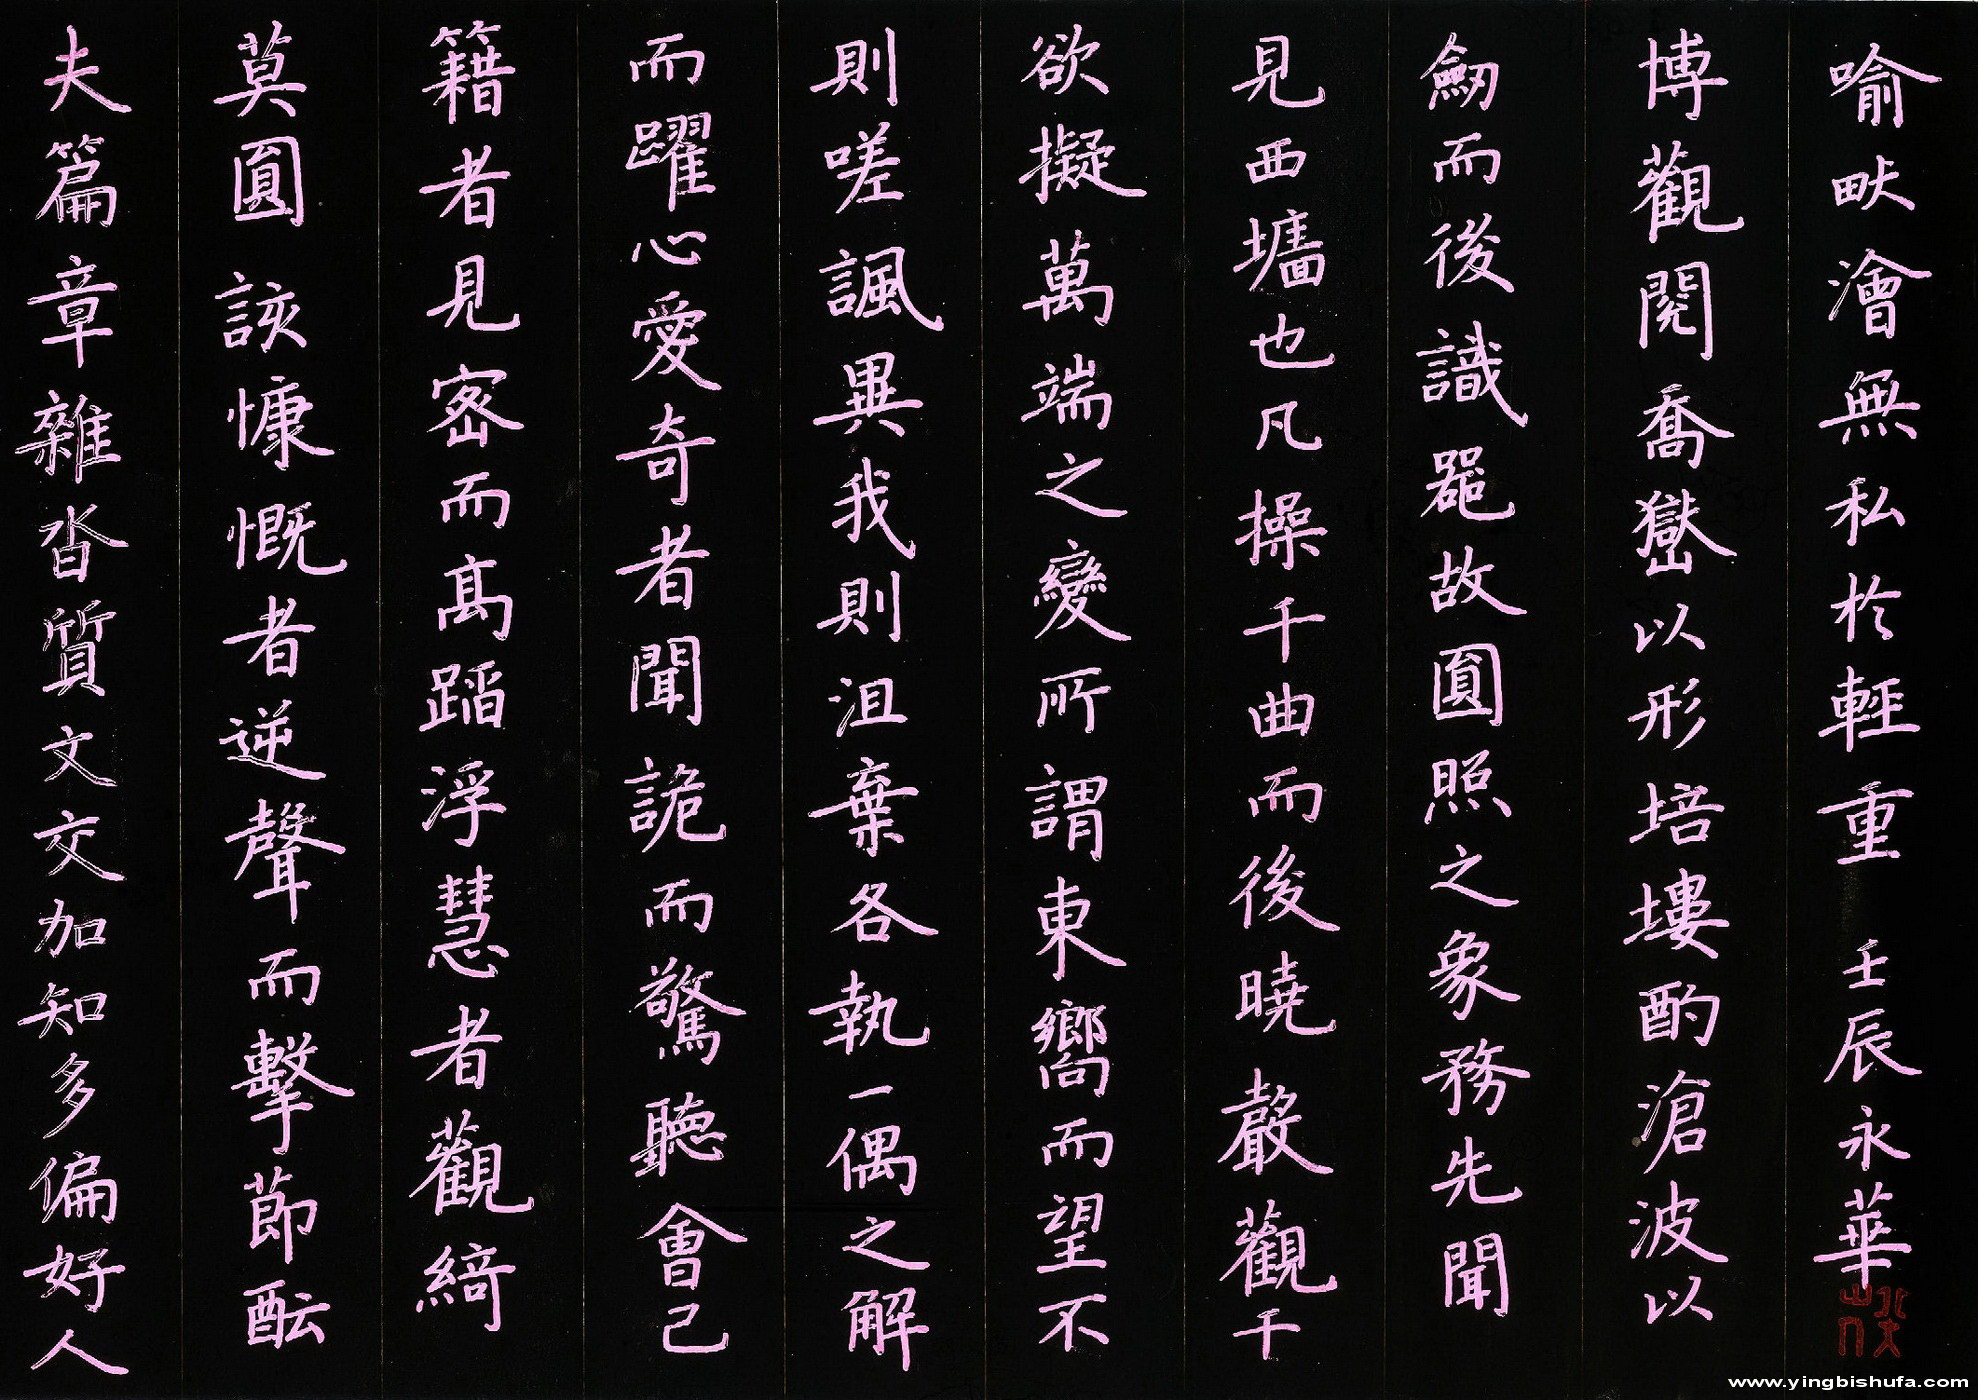 夫篇章雜沓質文交加知多偏好人
莫圓該慷慨者逆聲而擊節酝
籍者見密而高蹈浮慧者觀綺
而躍心愛奇者聞詭而驚聽會己
則嗟諷異我則沮棄各執一偶之解
欲擬萬端之變所謂東嚮而望不
見西墻也凡操千曲而後曉聲觀千
劒而後識器故圓照之象務先聞
博觀閱喬嶽以形培塿酌滄波以
喻畎澮無私於輕重 壬辰永華
www.yingbishufa.com